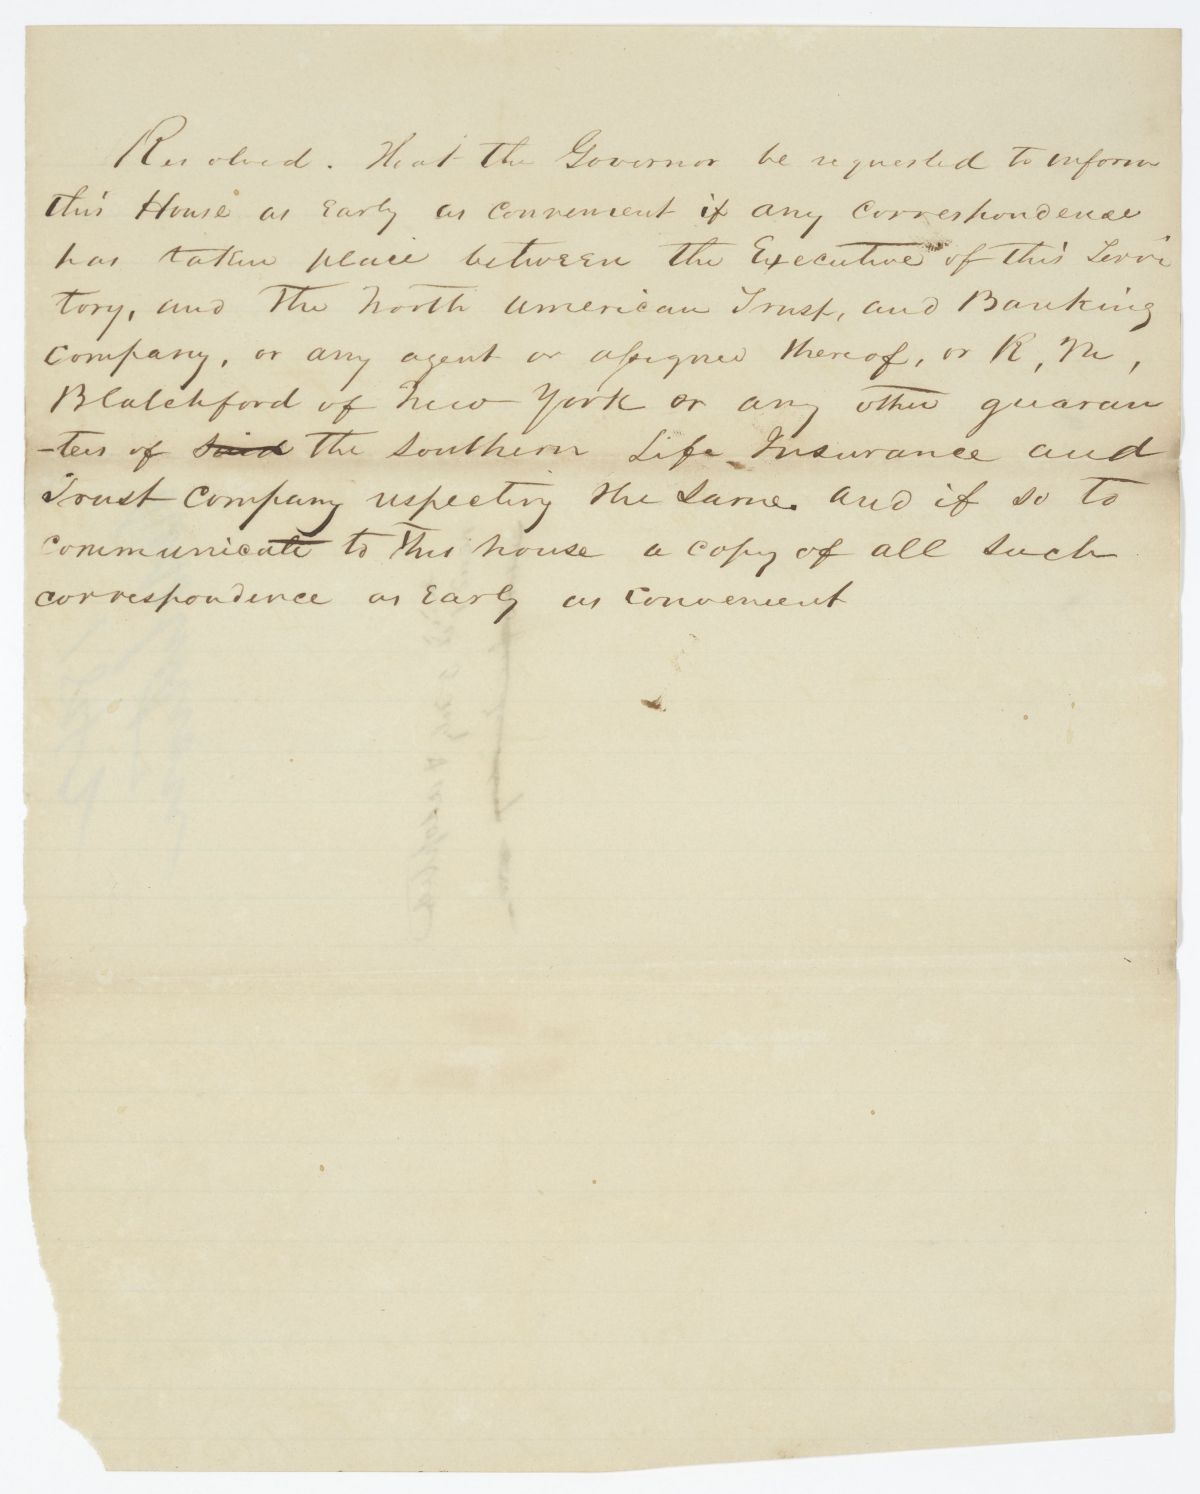 Resolved. That the Governor be requested to inform
this House as Early as convenient if any correspondence
has taken place between the Executive of this Terri
tory, and The North american Trust, and Banking
company, or any agent or assignee thereof, or R, M,
Blatchford of New York or any other guaran
-tees of said the southern Life Insurance and
Trust company respecting the same. and if so to
communicate to This house a copy of all such
correspondence as Early as convenient